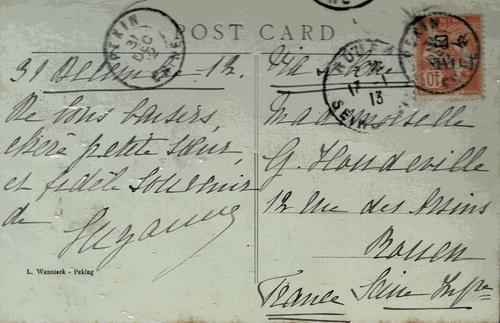 POST CARD
PEKIN
31
DEC
12
CHINE
ROUEN
17
13
PEKIN
31 Décembre 12.
De bons baisers,
chère petite Sœur,
et fidèle Souvenir
de
Suzanne
L. Wannieck - Peking
Mademoiselle
G. Houdeville
12 Rue des Arsins
Rouen
France Seine Infre